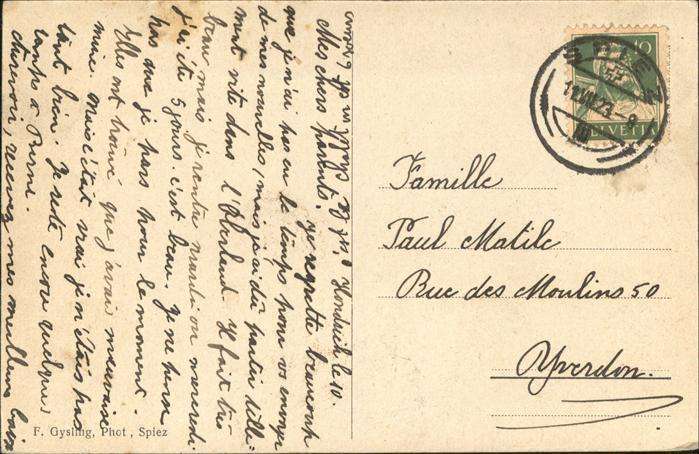 Hondrich le 10.
Mes chers parents. Je regrette beaucoup
que je n'ai pas eu le temps pour vs envoyer
de mes nouvelles, mais j'ai dû partir telle-
ment vite dans l'Oberland. Il fait très
beau mais je rentre mardi ou mercredi
j'ai été 5 jours. c'est beau. Je ne
pas que je pars pour le moment.
Elles ont trouvé que j'avais mauvaise
mine. Mais c'était vrai je n'étais pas
tant bien. Je reste encore quelques
temps à Berne.
recevez mes meilleurs baisers
F. Gysling, Phot., Spiez
SPIEZ
12.VII.23.-8
10
HELVETIA
Famille
Paul Matile
Rue des Moulins 50
Yverdon.